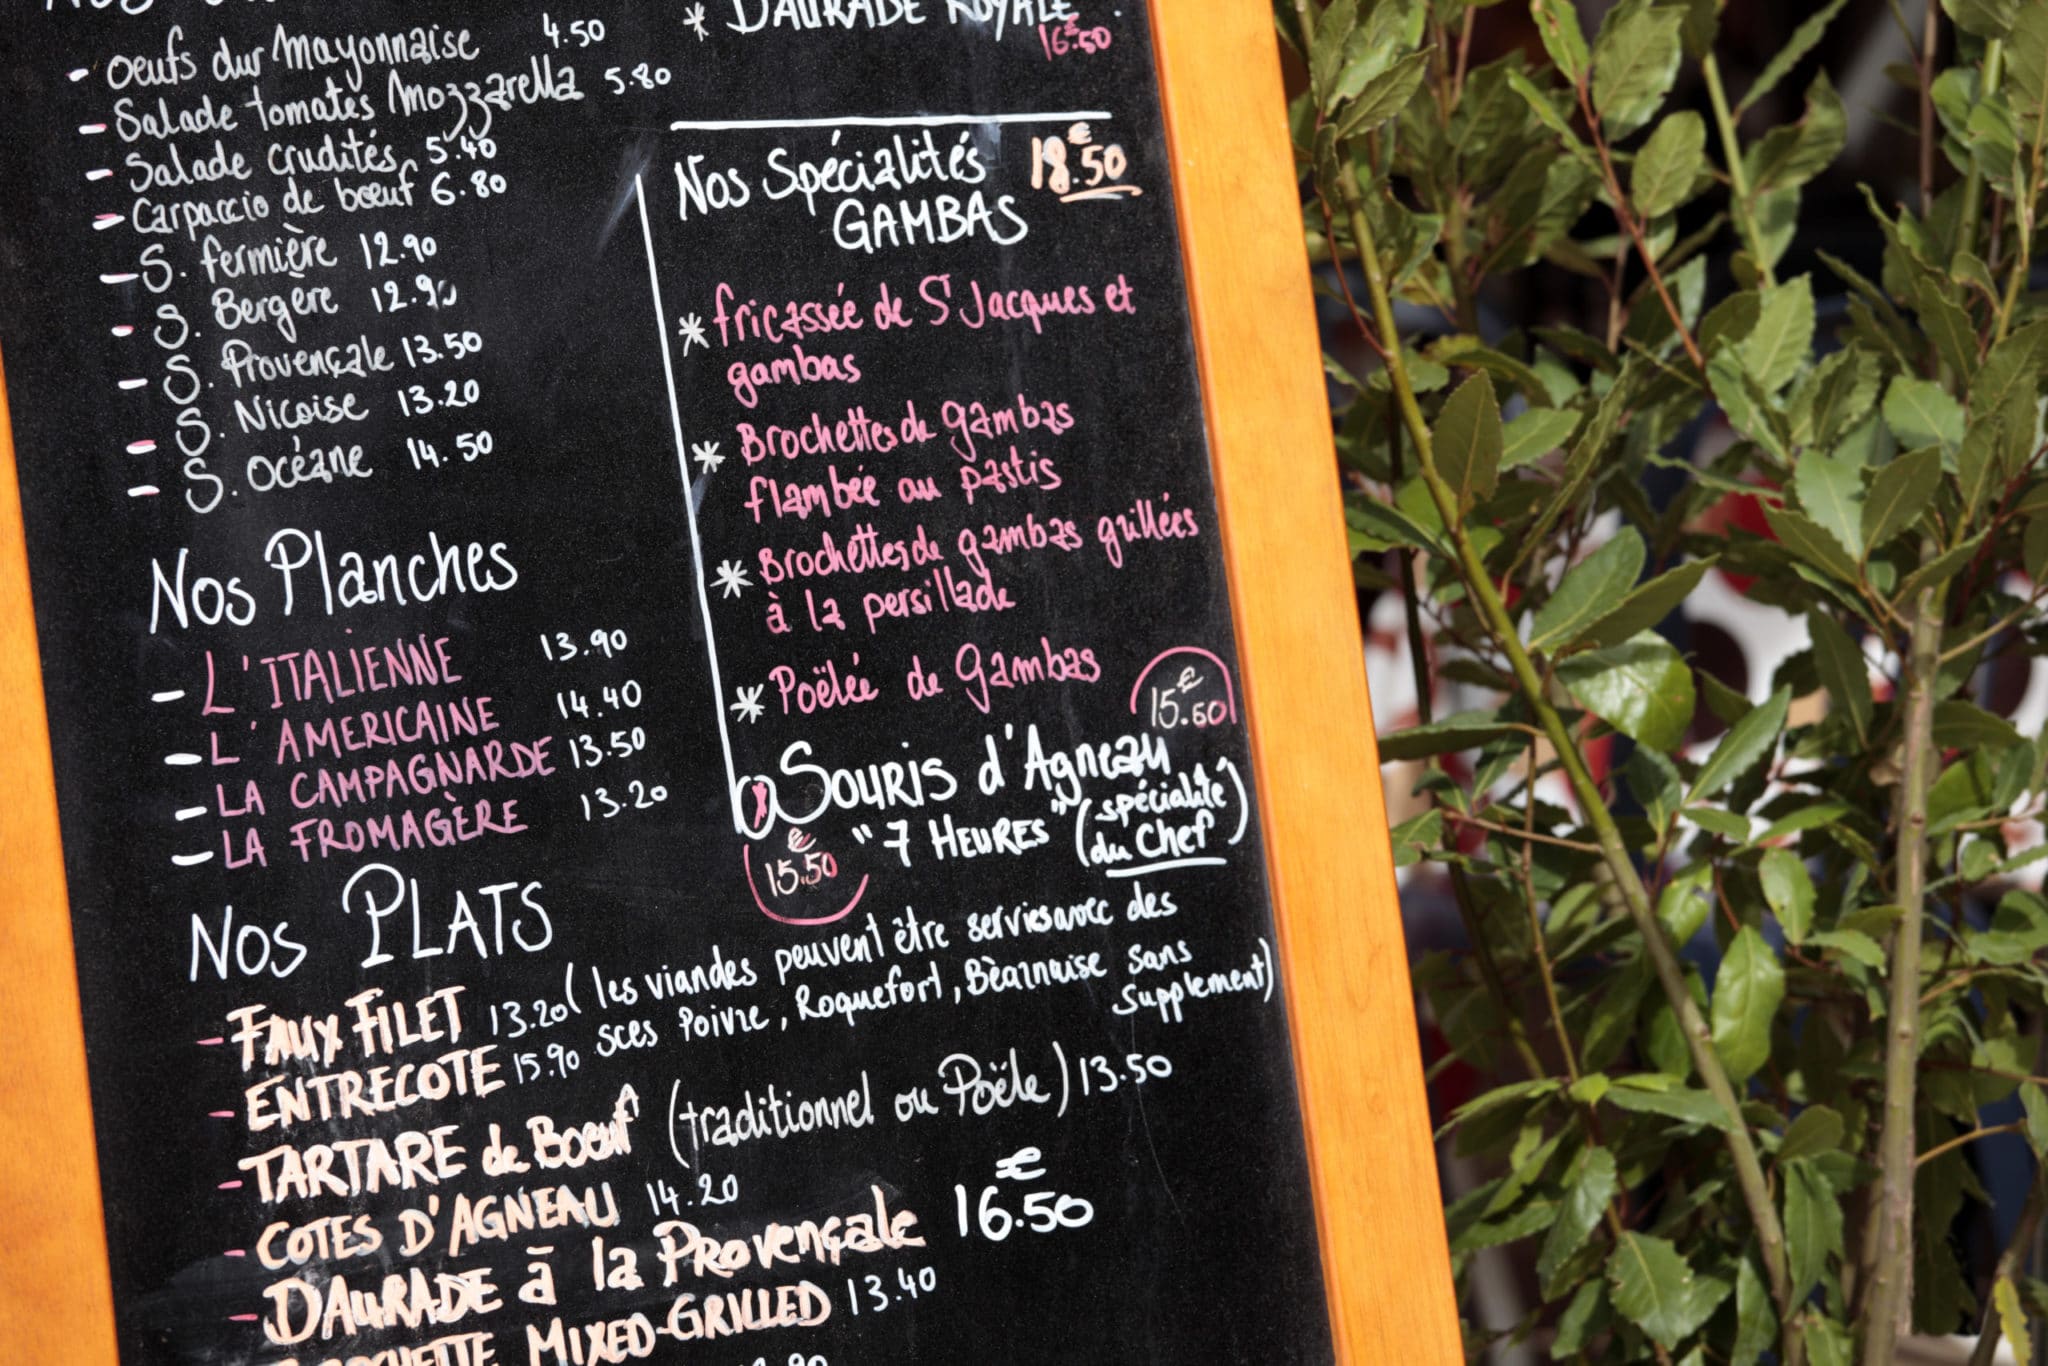 - Oeufs dur Mayonnaise 4.50
- Salade tomates Mozzarella 5.80
- Salade crudités 5.40
- Carpaccio de boeuf 6.80
- S. fermière 12.90
- S. Bergère 12.90
- S. Provençale 13.50
- S. Niçoise 13.20
- S. océane 14.50
Nos Planches
- L'ITALIENNE 13.90
- L'AMERICAINE 14.40
- LA CAMPAGNARDE 13.50
- LA FROMAGÈRE 13.20
* DAURADE ROYALE
16€.50
Nos Spécialités 18€.50
GAMBAS
* fricassée de St Jacques et
gambas
* Brochettes de gambas
flambée au pastis
* Brochettes de gambas grillées
à la persillade
* Poëlée de Gambas 15€.50
Souris d'Agneau
"7 HEURES" (spécialité
du Chef)
15€.50
Nos PLATS
- FAUX FILET 13.20 (les viandes peuvent être servies avec des
- ENTRECOTE 15.90 sces Poivre, Roquefort, Bèarnaise sans
supplement)
- TARTARE de Boeuf (traditionnel ou Poële) 13.50
- COTES D'AGNEAU 14.20
- DAURADE à la Provençale 16€.50
MIXED-GRILLED 13.40